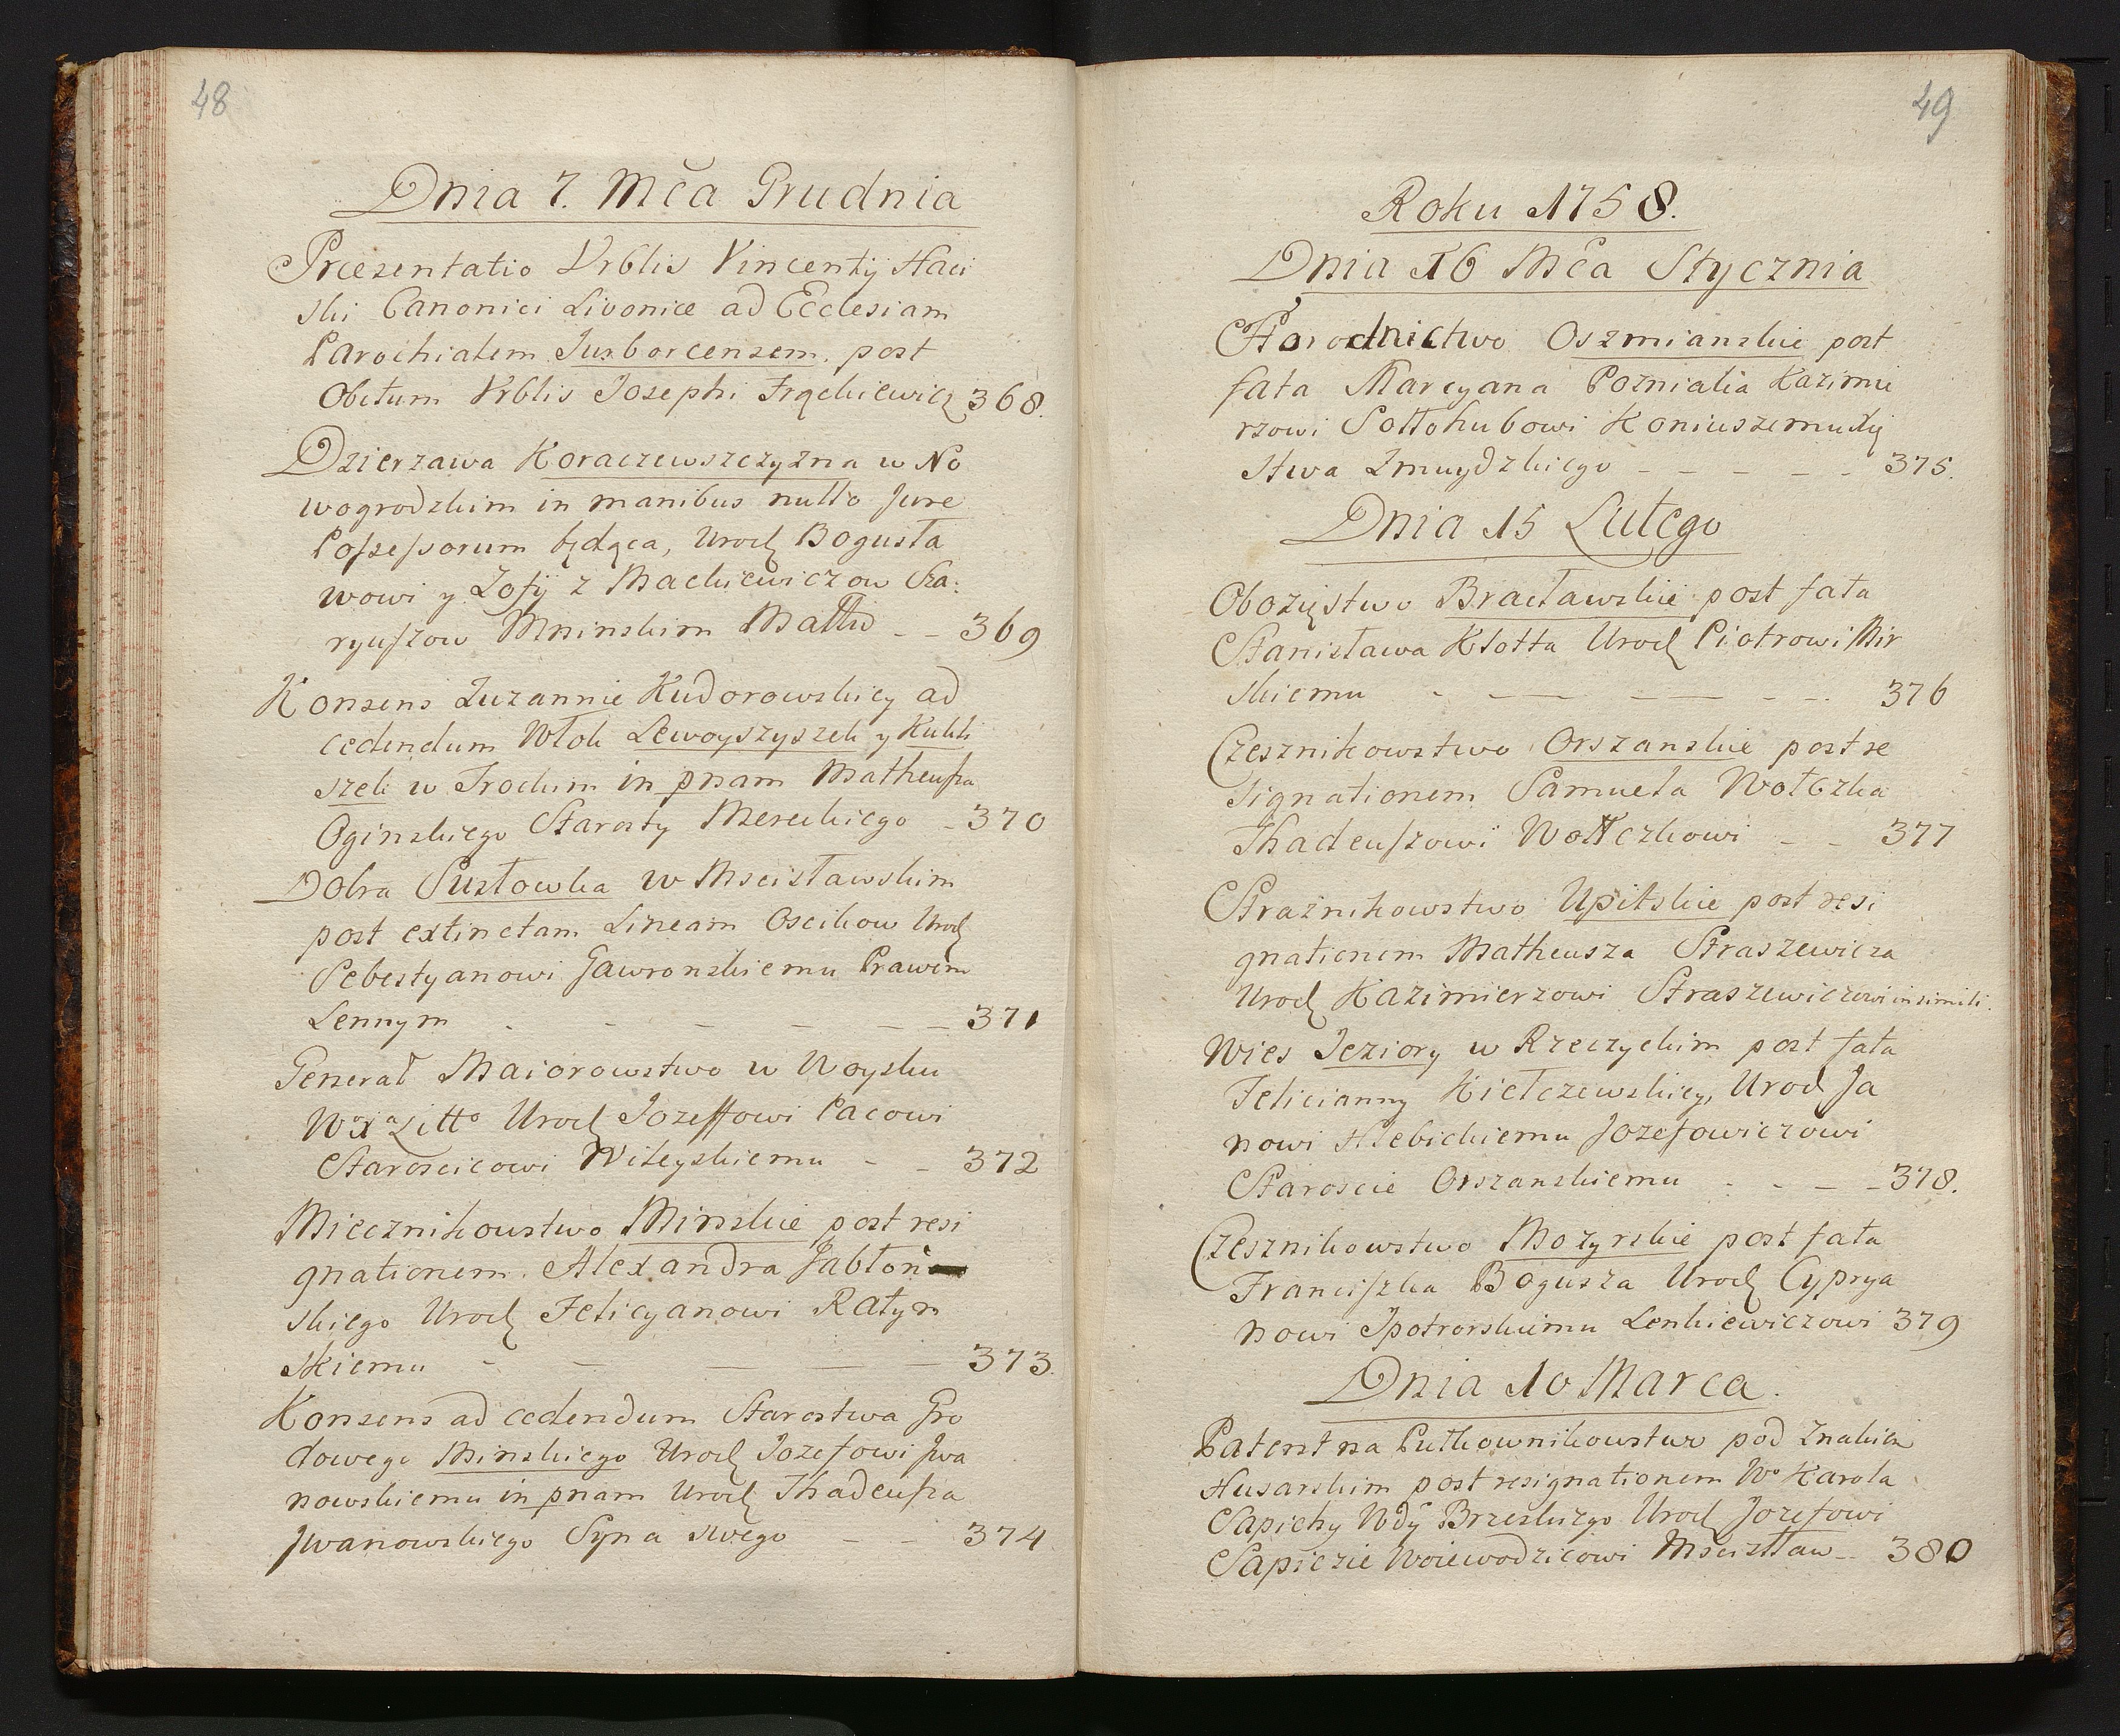 48
Dnia 7. Mča Grudnia
Præzentatio Vrblis Vincentij Haci
ski Canonici Livoniæ ad Ecclesiam
Parochialem Jurborcensem. post
Obitum Vrblis Josephi Frąckiewicz 368.
Dzierzawa Koraczewszczyzna w No
wogrodzkim in manibus nullo Jure
Possessorum będąca, Urodz Bogusła
wowi y Zofij z Mackiewiczow Sza:
ryuszow Mninskim Małżo - - 369
Konsens Zuzannie Kudorowskiey ad
cedendum Włok Lewoyszyszek y Kukli
szek w Trockim in pnam Matheusza
Oginskiego Starosty Mereckiego - 370
Dobra Susłowka w Mscisławskim
post extinctam Lineam Oscikow Urodz
Sebestyanowi Gawronskiemu Prawem
Lennym - - - - - - 371
Generał Maiorowstwo w Woysku
Wo Xa Litto Urodz Jozeffowi Pacowi
Staroscicowi Wileyskiemu - - 372
Miecznikowstwo Minskie post resi
gnationem. Alexandra Jabłon
skiego Urodz Felicyanowi Ratyn
skiemu - - - - 373.
Konsens ad cedendum Starostwa Gro
dowego Minskiego Urodz Jozefowi Jwa
nowskiemu in pnam Urodz Thadeusza
Jwanowskiego Syna swego - - 374
49
Roku 1758.
Dnia 16 Mča Stycznia
Horodnictwo Oszmianskie post
fata Marcyana Pozniaka Kazimie
rzowi Sołłohubowi Koniuszemu Xię
stwa Zmuydzkiego - - - - - 375.
Dnia 15 Lutego
Obozęstwo Bracławskie post fata
Stanisława Kłotta Urodz Piotrowi Mir
skiemu - - - - - 376
Czesznikowstwo Orszanskie post re
signationem Samuela Wołczka
Thadeuszowi Wołłczkowi - - 377
Straznikowstwo Upitskie post resi
gnationem Matheusza Straszewicza
Urodz Kazimierzowi Straszewiczowi in simili.
Wies Jeziory w Rzeczyckim post fata
Felicianny Kiełczewskiey, Urod Ja
nowi Hlebickiemu Jozefowiczowi
Staroscie Orszanskiemu - - - - 378.
Czesznikowstwo Mozyrskie post fata
Franciszka Bogusza Urodz Cyprya
nowi Jpotrorskiemu Lenkiewiczowi 379
Dnia 10 Marca.
Patent na Pułkownikowstwo pod Znakiem
Husarskim post resignationem Wo Karola
Sapiehy Wdy Brzeskiego Urodz Jozefowi
Sapiezie Woiewodzicowi Mscisław - - 380